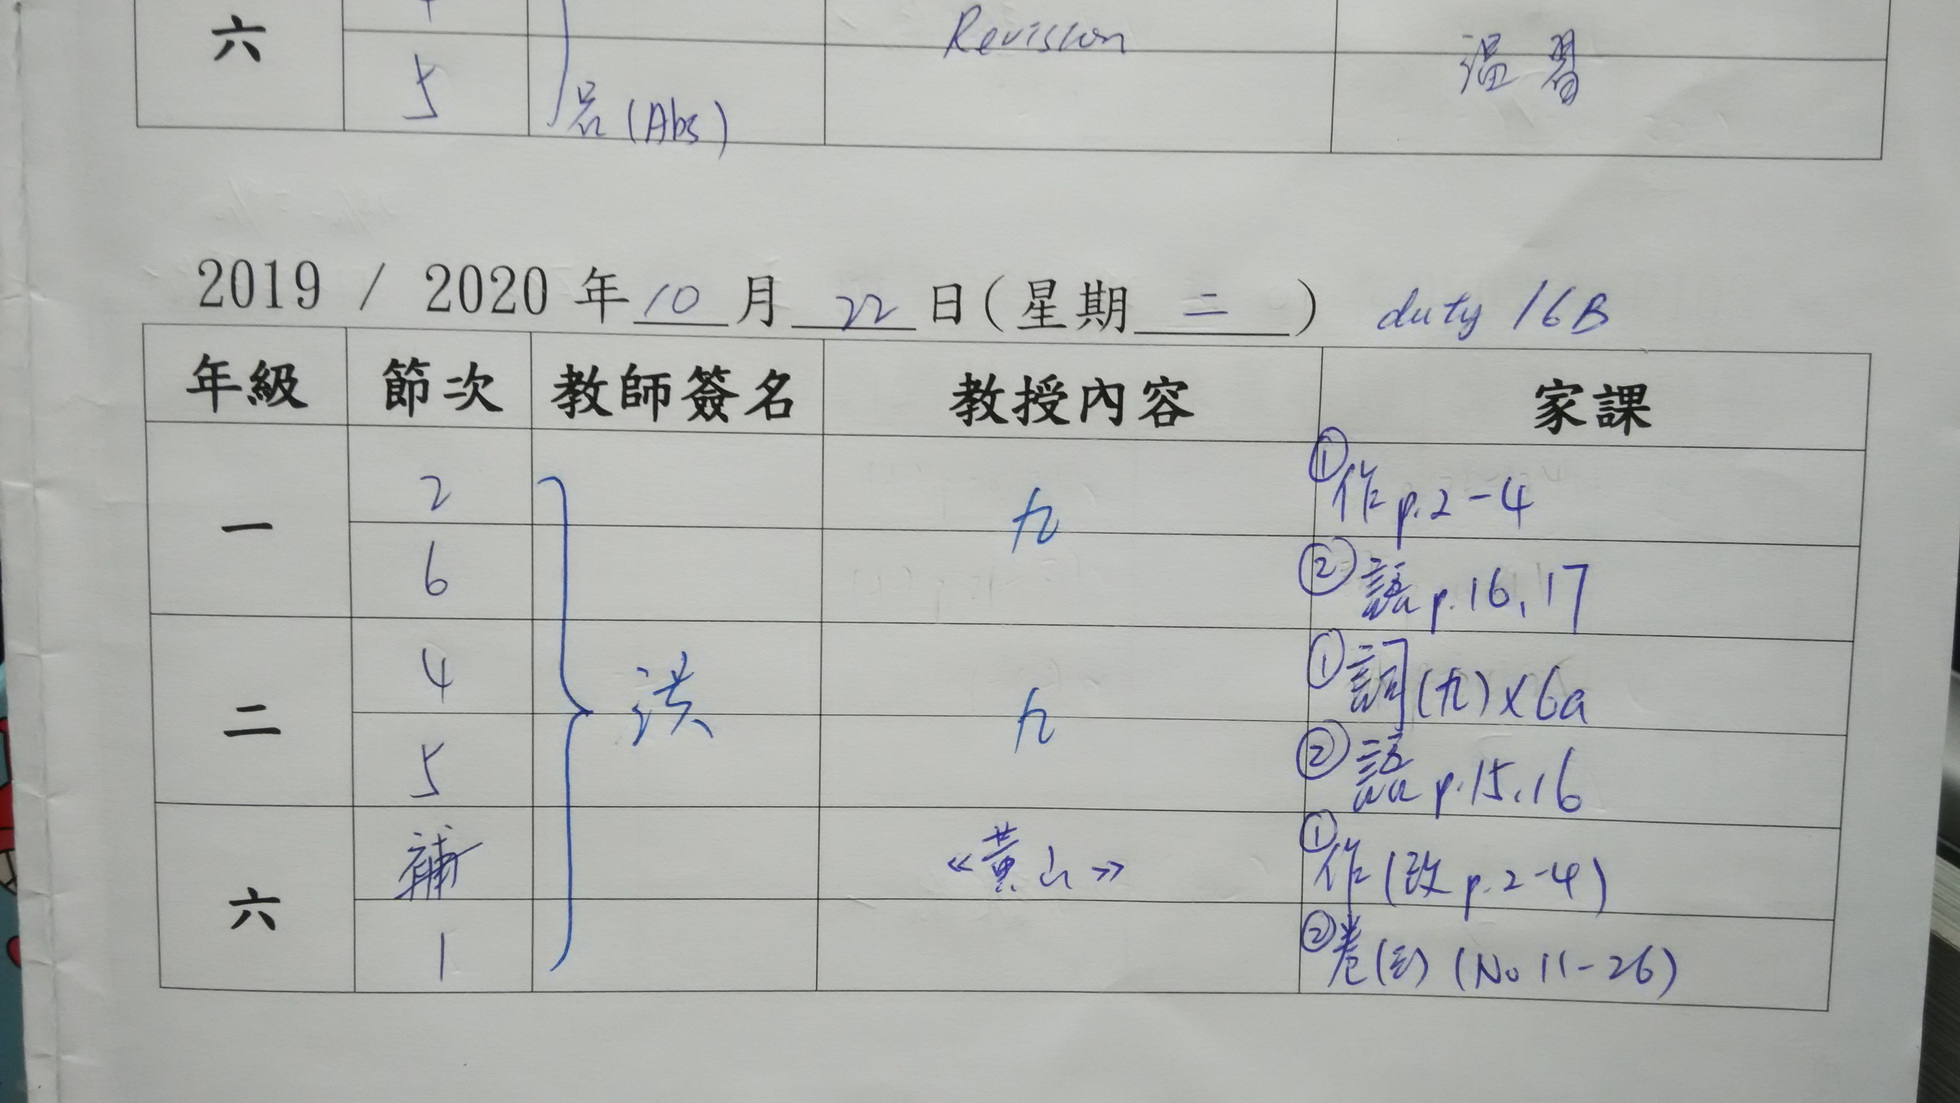 六
5
呂(Abs)
Revision
溫習
2019 / 2020 年 10 月 22 日(星期 二 ) duty 16B
年級 節次 教師簽名 教授內容 家課
一 2 九 ①作 p.2-4
6 ②語 p.16,17
二 4 洪 九 ①詞(九)x6a
5 ②語 p.15,16
六 補 《黃山》 ①作(改 p.2-4)
1 ②卷(No 11-26)